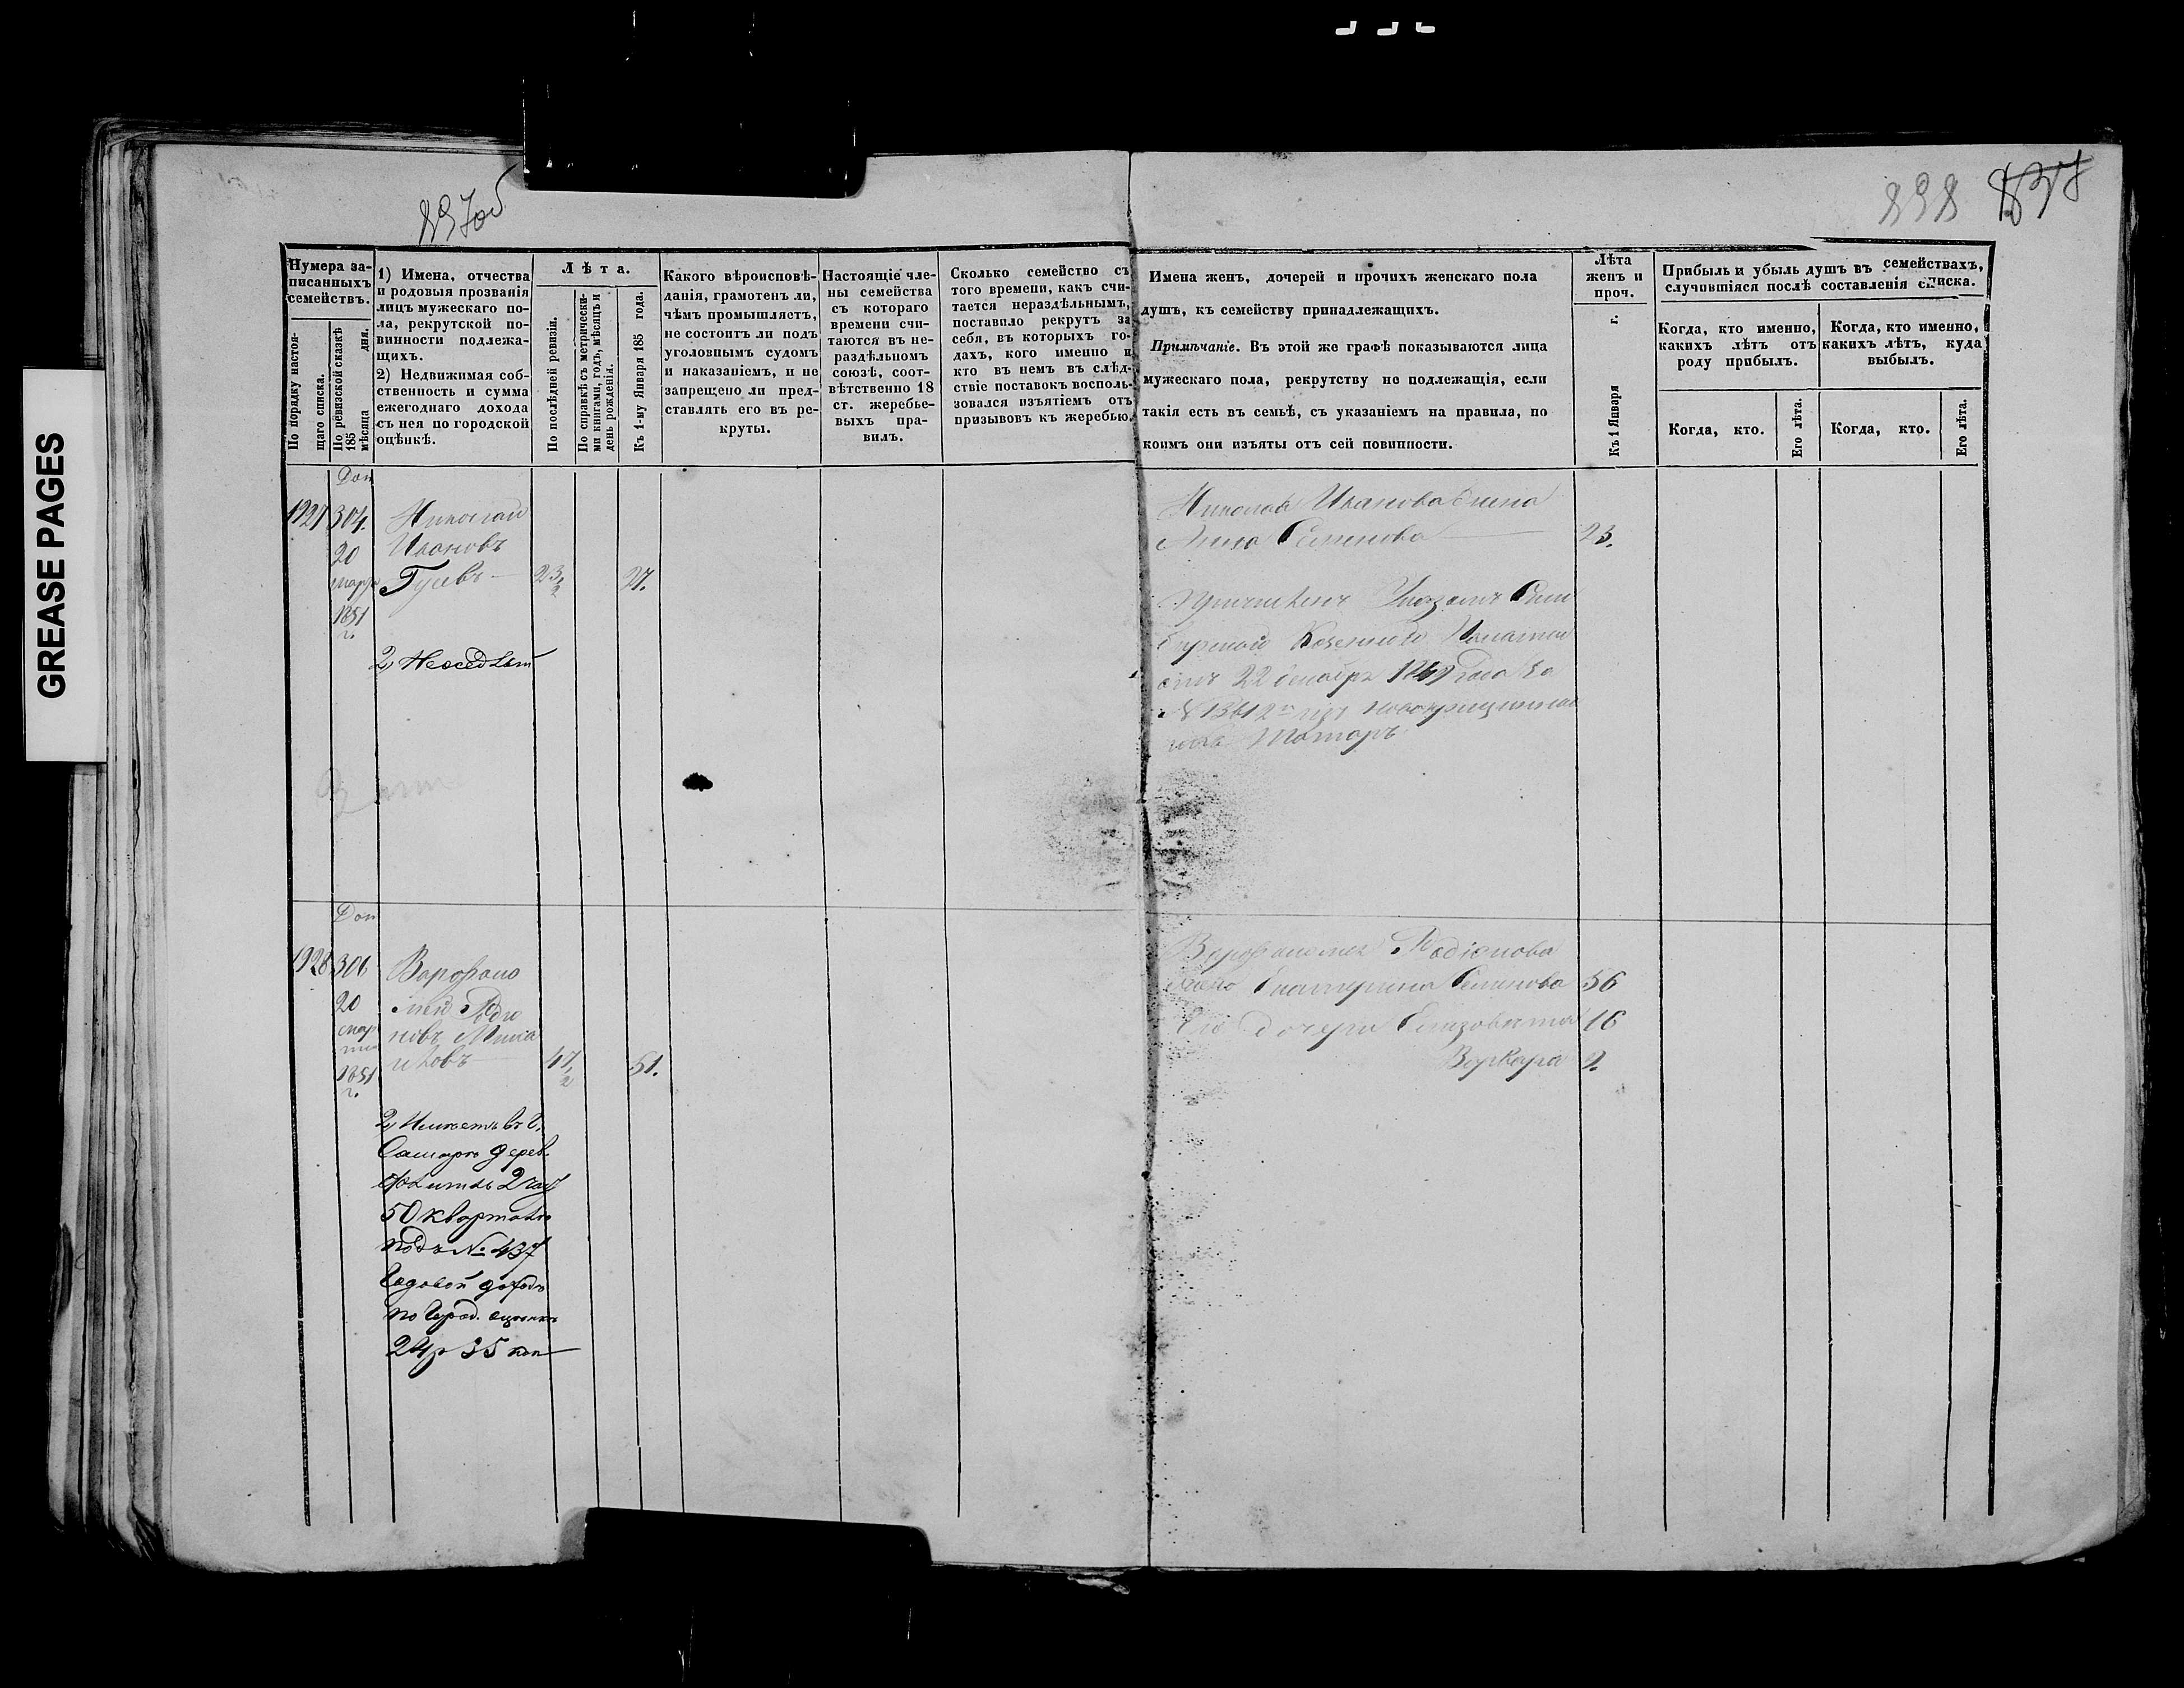 GREASE PAGES
897об
898
Нумера за-
писанныхъ
семействъ.
По порядку настоя-
щаго списка.
По ревизской сказкѣ
185 дня.
мѣсяца
1) Имена, отчества
и родовыя прозванія
лицъ мужескаго по-
ла, рекрутской по-
винности подлежа-
щихъ.
2) Недвижимая соб-
ственность и сумма
ежегоднаго дохода
съ нея по городской
оцѣнкѣ.
Лѣта.
По послѣдней ревизіи.
По справкѣ съ метрически-
ми книгами, годъ, мѣсяцъ и
день рожденія.
Къ 1-му Января 185 года.
Какого вѣроисповѣ-
данія, грамотенъ ли,
чѣмъ промышляетъ,
не состоитъ ли подъ
уголовнымъ судомъ
и наказаніемъ, и не
запрещено ли пред-
ставлять его въ ре-
круты.
Настоящіе чле-
ны семейства
съ котораго
времени счи-
таются въ не-
раздѣльномъ
союзѣ, соот-
вѣтственно 18
ст. жеребье-
выхъ пра-
вилъ.
Сколько семейство съ
того времени, какъ счи-
тается нераздѣльнымъ,
поставило рекрутъ за
себя, въ которыхъ го-
дахъ, кого именно и
кто въ немъ въ слѣд-
ствіе поставокъ восполь-
зовался изъятіемъ отъ
призывовъ къ жеребью.
Имена женъ, дочерей и прочихъ женскаго пола
душъ, къ семейству принадлежащихъ.
Примѣчаніе. Въ этой же графѣ показываются лица
мужескаго пола, рекрутству не подлежащія, если
такія есть въ семьѣ, съ указаніемъ на правила, по
коимъ они изъяты отъ сей повинности.
Лѣта
женъ и
проч.
Къ 1 Января г.
Прибыль и убыль душъ въ семействахъ,
случившіяся послѣ составленія списка.
Когда, кто именно,
какихъ лѣтъ отъ
роду прибылъ.
Когда, кто именно,
какихъ лѣтъ, куда
выбылъ.
Когда, кто.
Его лѣта.
Когда, кто.
Его лѣта.
Доп
1927 304.
20
марта
1851
г.
Николай
Ивановъ
Гусевъ
23 1/2
27.
2) Неоседлый
Николая Иванова жена
Анна Семенова 23.
Причисленъ Указомъ Сим
бирской Казенной Палаты
отъ 22 декабря 1849 года За
№ 13612 изъ новокрещенна
го Татаръ
Доп
1928 306
20
мар
та
1851
г.
Варфоло
мей Родіо
новъ Миха
йловъ
47 1/2
51.
2) Имѣетъ въ г.
Самарѣ дерев.
2 час
50 квартала
подъ № 437
Годовой доходъ
по город. оцѣнкѣ
24р 35 коп
Варфоломея Родіонова
жена Екатерина Семенова 56
Его дочери Елизавета 16
Варвара 9.